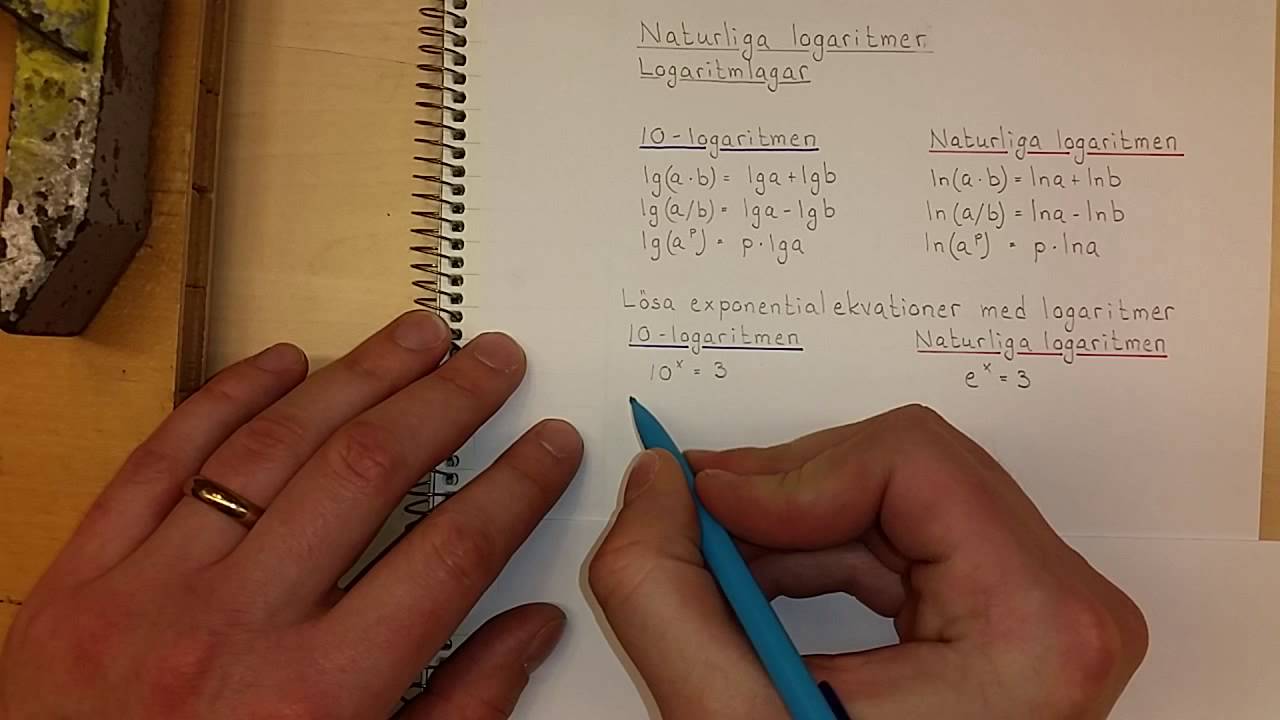 Naturliga logaritmer
Logaritmlagar
10-logaritmen
lg(a·b) = lga+lgb
lg(a/b) = lga-lgb
lg(aᵖ) = p·lga
Naturliga logaritmen
ln(a·b) = lna+lnb
ln(a/b) = lna-lnb
ln(aᵖ) = p·lna
Lösa exponentialekvationer med logaritmer
10-logaritmen
10ˣ = 3
Naturliga logaritmen
eˣ = 3